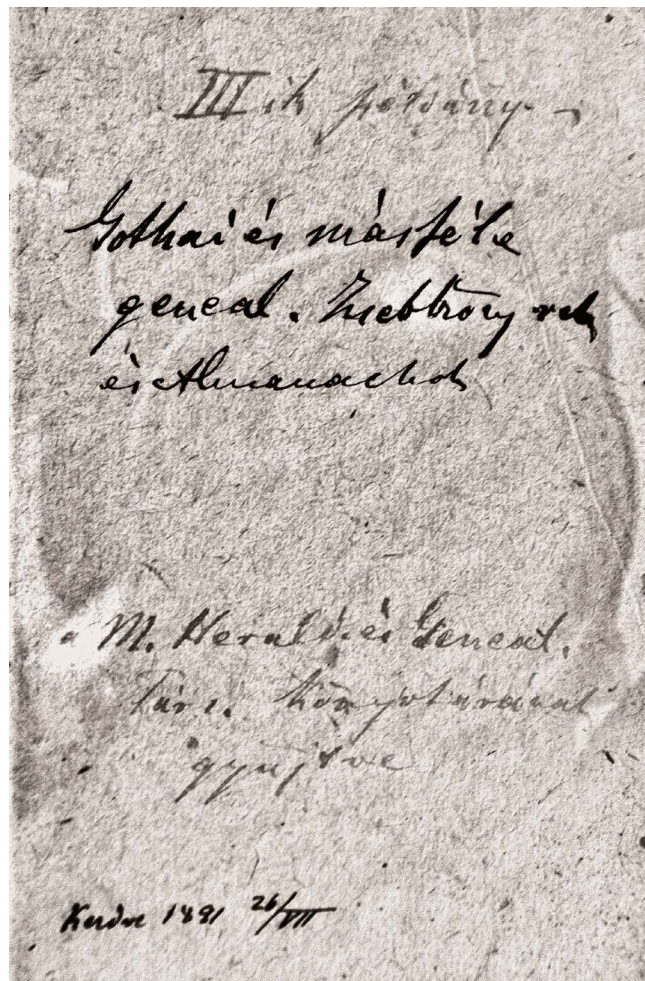 IIIik példány
Gothai és másféle
geneal. Zsebkönyvek
és Almanachok
a M. Herald. és Geneal.
Társ. Könyvtárának
gyűjtve
Kezdve 1891 26/VII